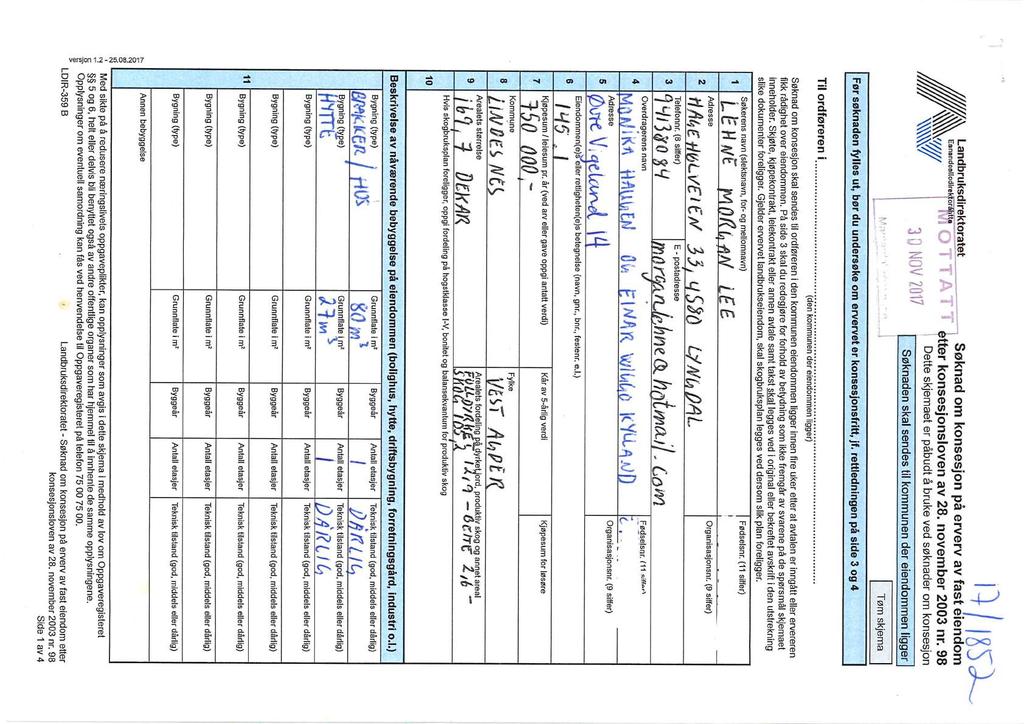 17/1852
Landbruksdirektoratet
Eanandoallodirektoráhtta
MOTTATT
30 NOV 2017
Søknad om konsesjon på erverv av fast eiendom
etter konsesjonsloven av 28. november 2003 nr. 98
Dette skjemaet er påbudt å bruke ved søknader om konsesjon
Søknaden skal sendes til kommunen der eiendommen ligger
Tøm skjema
Før søknaden fylles ut, bør du undersøke om ervervet er konsesjonsfritt, jf. rettledningen på side 3 og 4
Til ordføreren i
(den kommunen der eiendommen ligger)
Søknad om konsesjon skal sendes til ordføreren i den kommunen eiendommen ligger innen fire uker etter at avtalen er inngått eller erververen
fikk rådighet over eiendommen. På side 3 skal du redegjøre for forhold av betydning som ikke fremgår av svarene på de spørsmål skjemaet
inneholder. Skjøte, kjøpekontrakt, leiekontrakt eller annen avtale samt takst skal legges ved i original eller bekreftet avskrift i den utstrekning
slike dokumenter foreligger. Gjelder ervervet landbrukseiendom, skal skogbruksplan legges ved dersom slik plan foreligger.
1 Søkerens navn (slektsnavn, for- og mellomnavn) Fødselsnr. (11 siffer)
LEHNE MORGAN LEE
2 Adresse Organisasjonsnr. (9 siffer)
HAUGEHØLVEIEN 33, 4580 LYNGDAL
3 Telefonnr. (8 siffer) E - postadresse
94138084 morganlehne@hotmail.com
4 Overdragerens navn Fødselsnr. (11 siffer)
MONIKA HAUGEN OG EINAR WIGGO KYLLAND
5 Adresse Organisasjonsnr. (9 siffer)
Øvre Vigeland 14
6 Eiendommen(e)s eller rettigheten(e)s betegnelse (navn, gnr., bnr., festenr. e.l.)
145, 1
7 Kjøpesum / leiesum pr. år (ved arv eller gave oppgi antatt verdi) Kår av 5-årlig verdi Kjøpesum for løsøre
750 000,-
8 Kommune Fylke
LINDESNES VEST AGDER
9 Arealets størrelse Arealets fordeling på dyrket jord, produktiv skog og annet areal
169,7 DEKAR FULLDYRKET 12,9 - BEITE 2,6 -
SKOG 105,2
10 Hvis skogbruksplan foreligger, oppgi fordeling på hogstklasse I-V, bonitet og balansekvantum for produktiv skog
Beskrivelse av nåværende bebyggelse på eiendommen (bolighus, hytte, driftsbygning, forretningsgård, industri o.l.)
11
Bygning (type) Grunnflate i m² Byggeår Antall etasjer Teknisk tilstand (god, middels eller dårlig)
BRAKKER / HUS 80 m² 1 DÅRLIG
Bygning (type) Grunnflate i m² Byggeår Antall etasjer Teknisk tilstand (god, middels eller dårlig)
HYTTE 27m² 1 DÅRLIG
Bygning (type) Grunnflate i m² Byggeår Antall etasjer Teknisk tilstand (god, middels eller dårlig)
Bygning (type) Grunnflate i m² Byggeår Antall etasjer Teknisk tilstand (god, middels eller dårlig)
Bygning (type) Grunnflate i m² Byggeår Antall etasjer Teknisk tilstand (god, middels eller dårlig)
Bygning (type) Grunnflate i m² Byggeår Antall etasjer Teknisk tilstand (god, middels eller dårlig)
Annen bebyggelse
Med sikte på å redusere næringslivets oppgaveplikter, kan opplysninger som avgis i dette skjema i medhold av lov om Oppgaveregisteret
§§ 5 og 6, helt eller delvis bli benyttet også av andre offentlige organer som har hjemmel til å innhente de samme opplysningene.
Opplysninger om eventuell samordning kan fås ved henvendelse til Oppgaveregisteret på telefon 75 00 75 00.
versjon 1.2 - 25.08.2017
LDIR-359 B
Landbruksdirektoratet - Søknad om konsesjon på erverv av fast eiendom etter
konsesjonsloven av 28. november 2003 nr. 98
Side 1 av 4